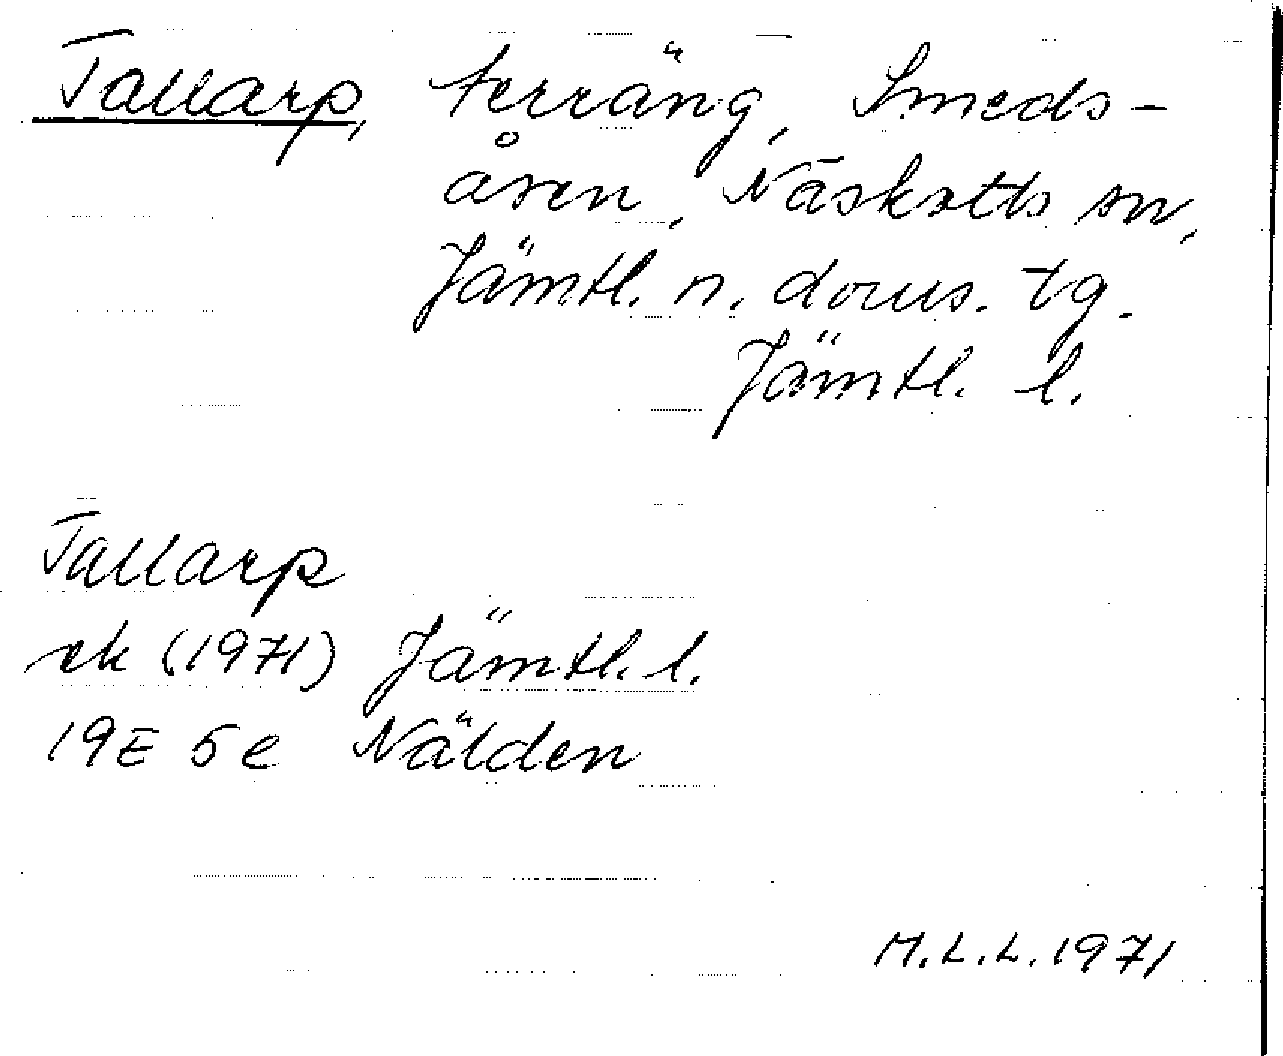 Tallarp, terräng, Smeds-
åsen, Näskotts sn,
Jämtl. n. doms. tg.
Jämtl. l.
Tallarp
ek (1971) Jämtl. l.
19E 5e Nälden
M.L.L. 1971